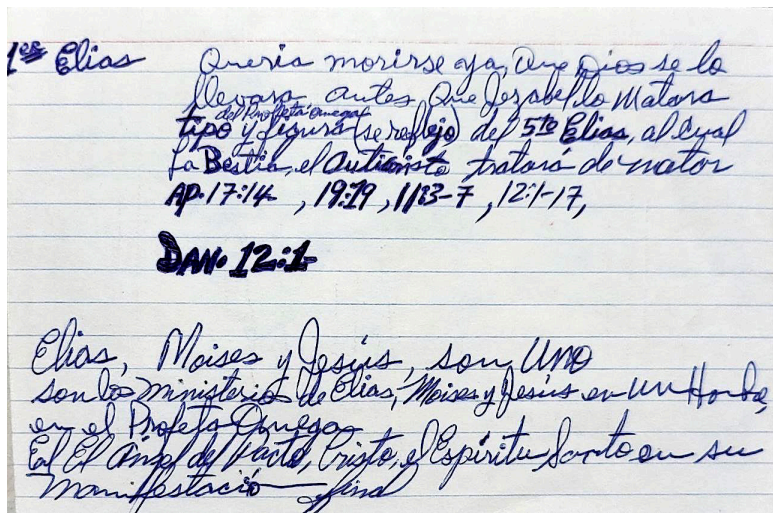 1er Elias Queria morirse ya, Que Dios se lo
llevara antes Que Jezabel lo Matara
del Profeta Omega
tipo y figura (se reflejo) del 5to Elias, al cual
La Bestia, el Anticristo tratará de matar
AP. 17:14 , 19:19 , 11:3-7 , 12:1-17,
DAN. 12:1-
Elias, Moises y Jesús, son UNO
son los ministerios de Elias, Moises y Jesús en un Hombre,
en el Profeta Omega
Es El Ángel del Pacto, Cristo, el Espíritu Santo en su
manifestació final